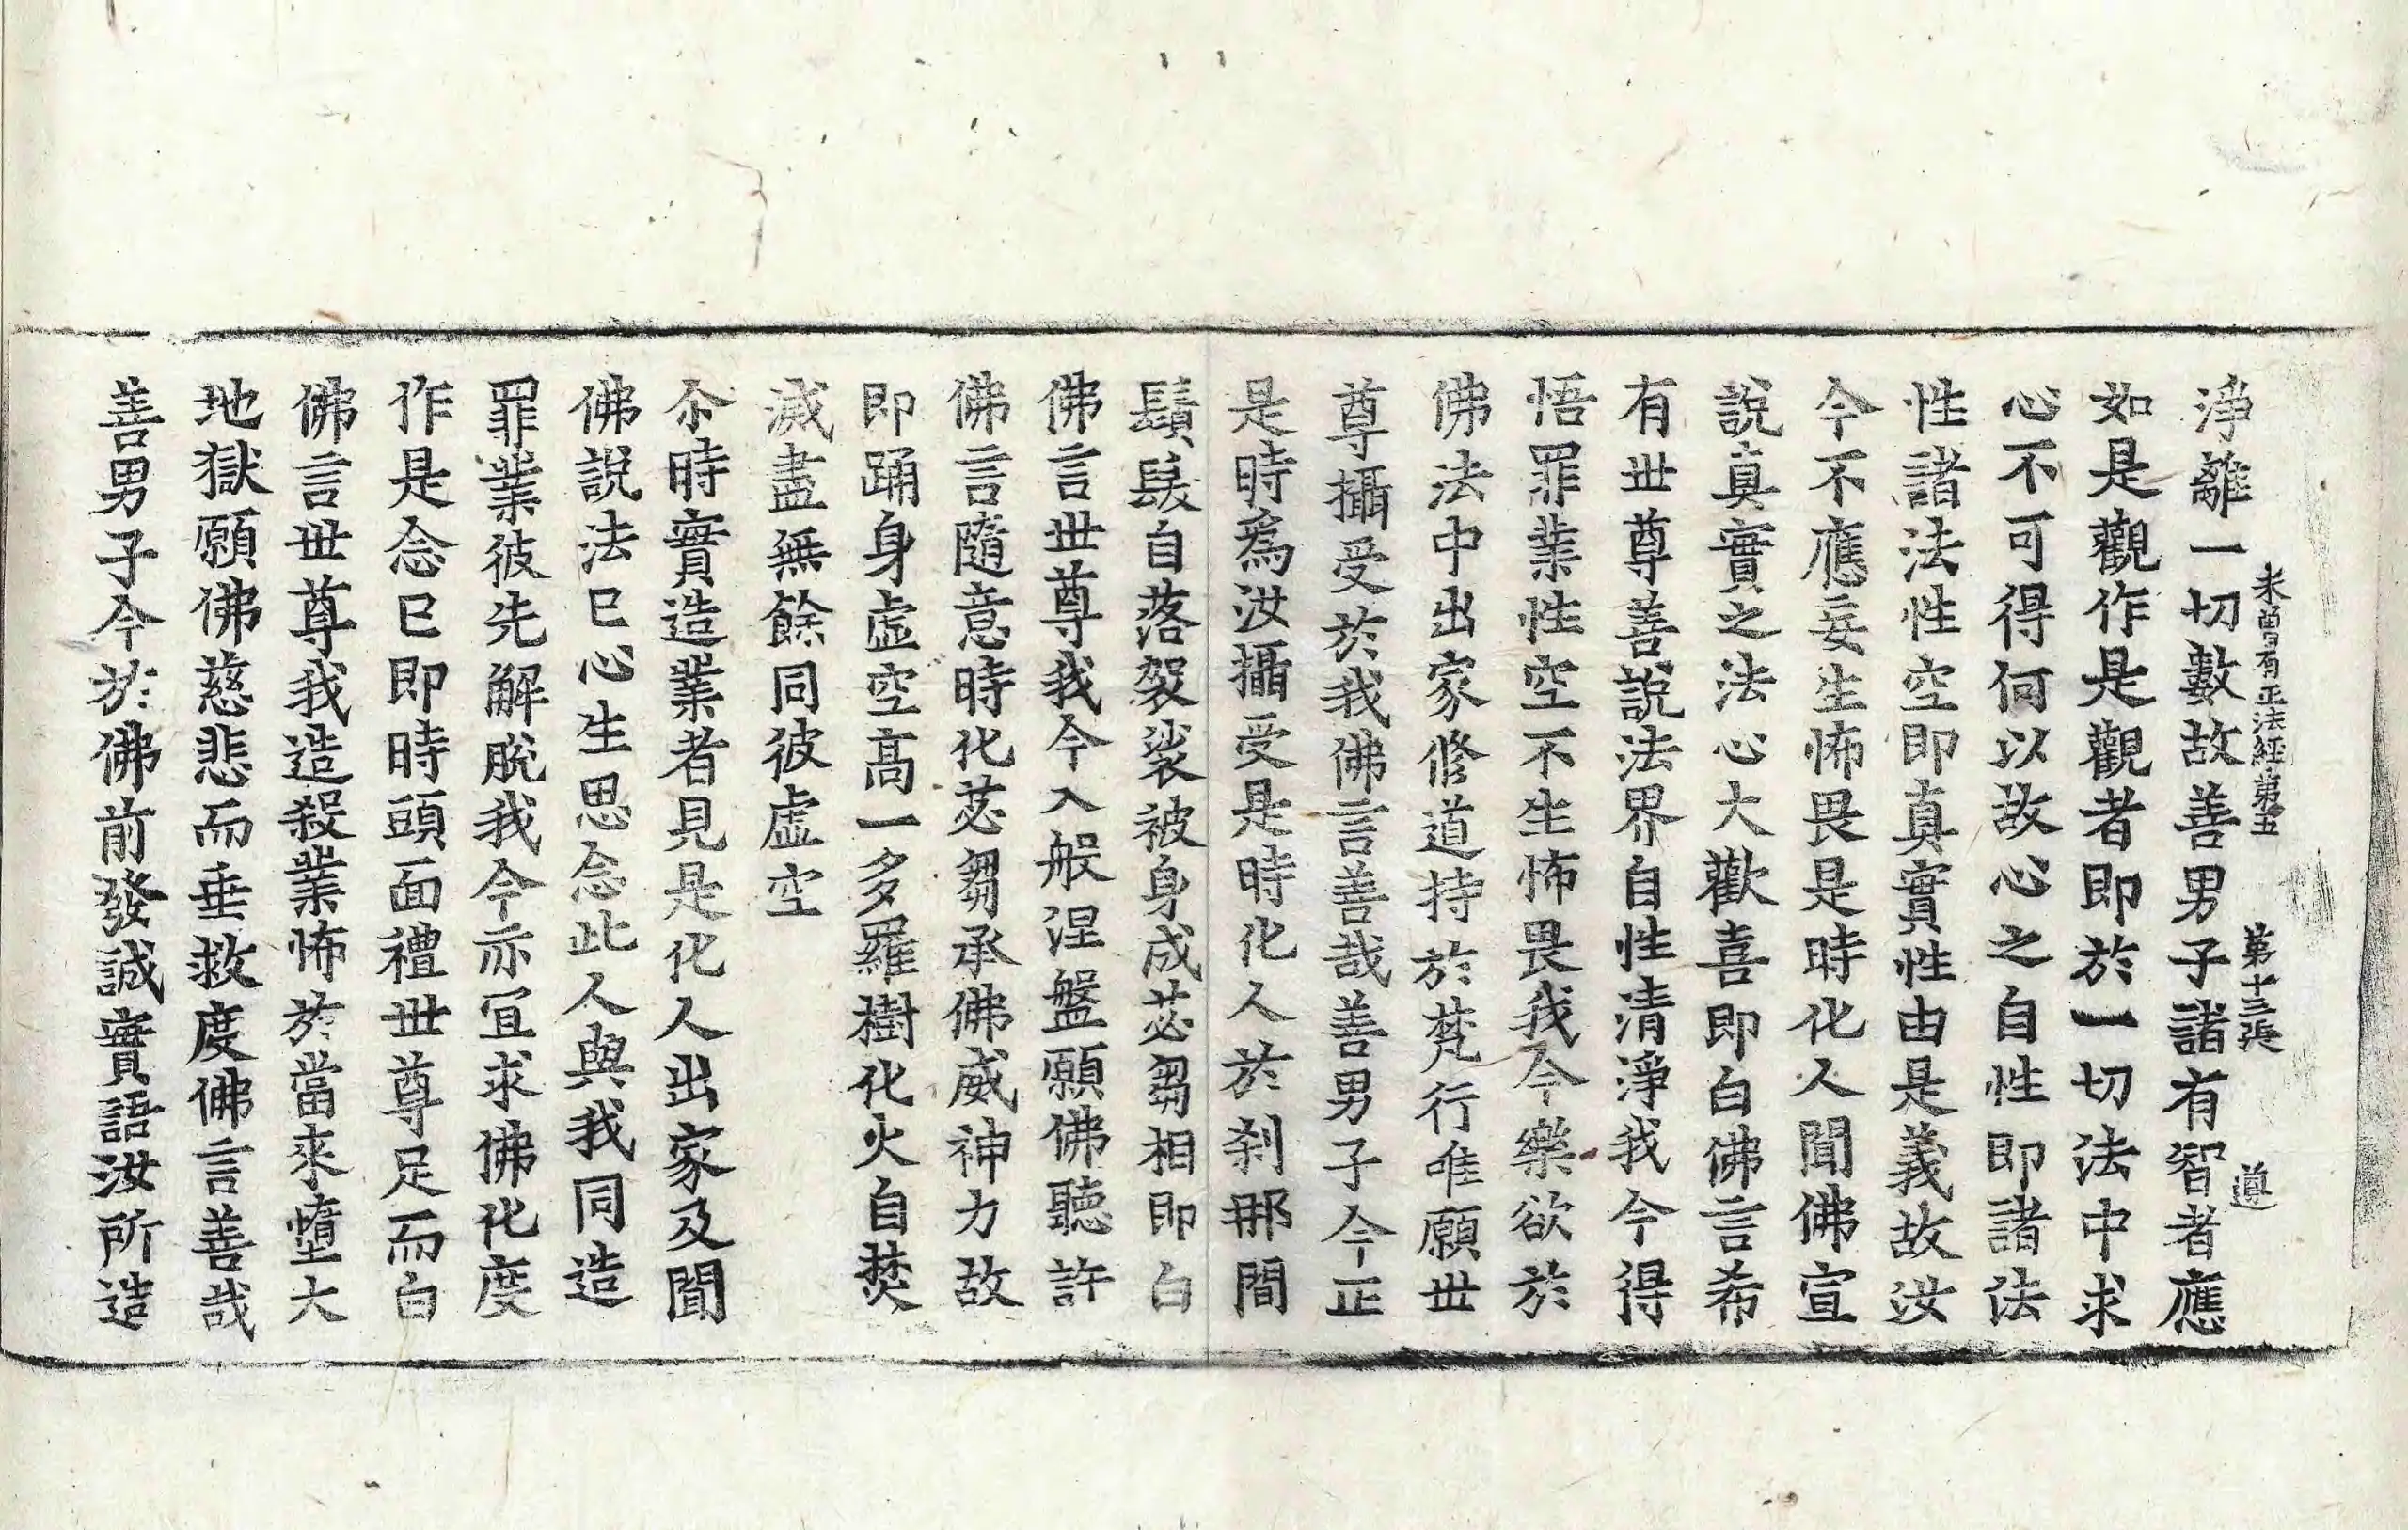 未曾有正法經第五 第十三張 遵
淨離一切數故善男子諸有智者應
如是觀作是觀者即於一切法中求
心不可得何以故心之自性即諸法
性諸法性空即真實性由是義故汝
今不應妄生怖畏是時化人聞佛宣
說真實之法心大歡喜即白佛言希
有世尊善說法界自性清淨我今得
悟罪業性空不生怖畏我今樂欲於
佛法中出家修道持於梵行唯願世
尊攝受於我佛言善哉善男子今正
是時爲汝攝受是時化人於刹那間
鬚髮自落袈裟被身成苾芻相即白
佛言世尊我今入般涅盤願佛聽許
佛言隨意時化苾芻承佛威神力故
即踊身虛空高一多羅樹化火自焚
滅盡無餘同彼虛空
尒時實造業者見是化人出家及聞
佛說法已心生思念此人與我同造
罪業彼先解脫我今亦宜求佛化度
作是念已即時頭面禮世尊足而白
佛言世尊我造殺業怖於當來墮大
地獄願佛慈悲而垂救度佛言善哉
善男子今於佛前發誠實語汝所造